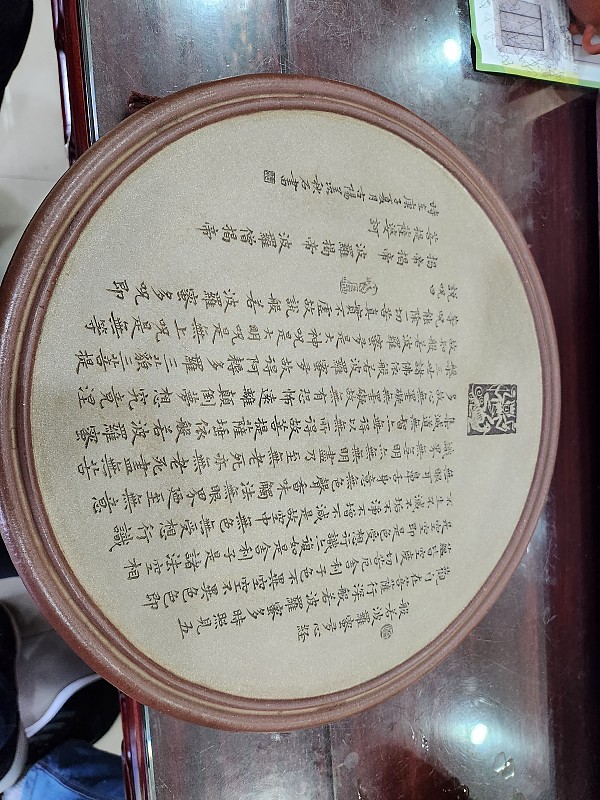 般若波羅蜜多心經
觀自在菩薩行深般若波羅蜜多時照見五
蘊皆空度一切苦厄舍利子色不異空空不異色色即
是空空即是色受想行識亦復如是舍利子是諸法空相
不生不滅不垢不淨不增不減是故空中無色無受想行識
無眼耳鼻舌身意無色聲香味觸法無眼界乃至無意
識界無無明亦無無明盡乃至無老死亦無老死盡無苦
集滅道無智亦無得以無所得故菩提薩埵依般若波羅蜜
多故心無罣礙無罣礙故無有恐怖遠離顛倒夢想究竟涅
槃三世諸佛依般若波羅蜜多故得阿耨多羅三藐三菩提
故知般若波羅蜜多是大神呪是大明呪是無上呪是無等
等呪能除一切苦真實不虛故說般若波羅蜜多呪即
說呪曰
揭帝揭帝 波羅揭帝 波羅僧揭帝
菩提薩婆訶
夏月古陽羨秋石書